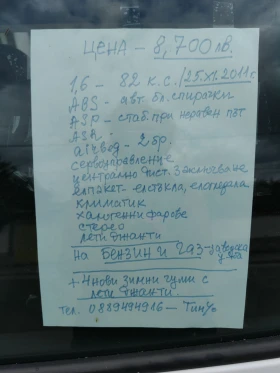 ЦЕНА - 8,700лв.
1,6 - 82 к.с. /25.XI.2011г.
ABS - авт. бл. спирачки
ASP - стаб. при неравен път
ASR
airbag - 2бр.
сервоуправление
централно дист. заключване
ел.пакет - ел.стъкла, ел.огледала
климатик
халогенни фарове
стерео
лети джанти
на бензин и газ - заводска
+ 4 нови зимни гуми с
лети джанти.
тел. 0889494916 -